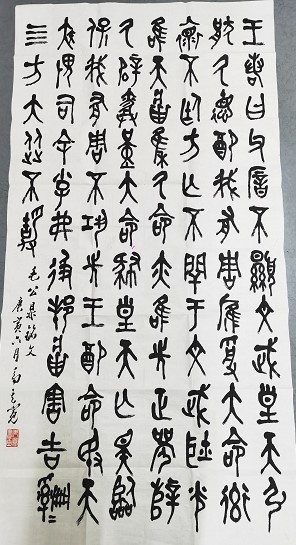 王若曰父厝不顯文武皇天弘
厭厥德配我有周膺受大命率
懷不廷方亡不閈于文武耿光
唯天將集厥命亦唯先正襄辥
厥辟勤大命肆皇天亡斁臨
保我有周不巩先王配命敃天
疾畏司余小子弗彶邦將害吉
三方大從不靜
毛公鼎銘文
庚寅六月